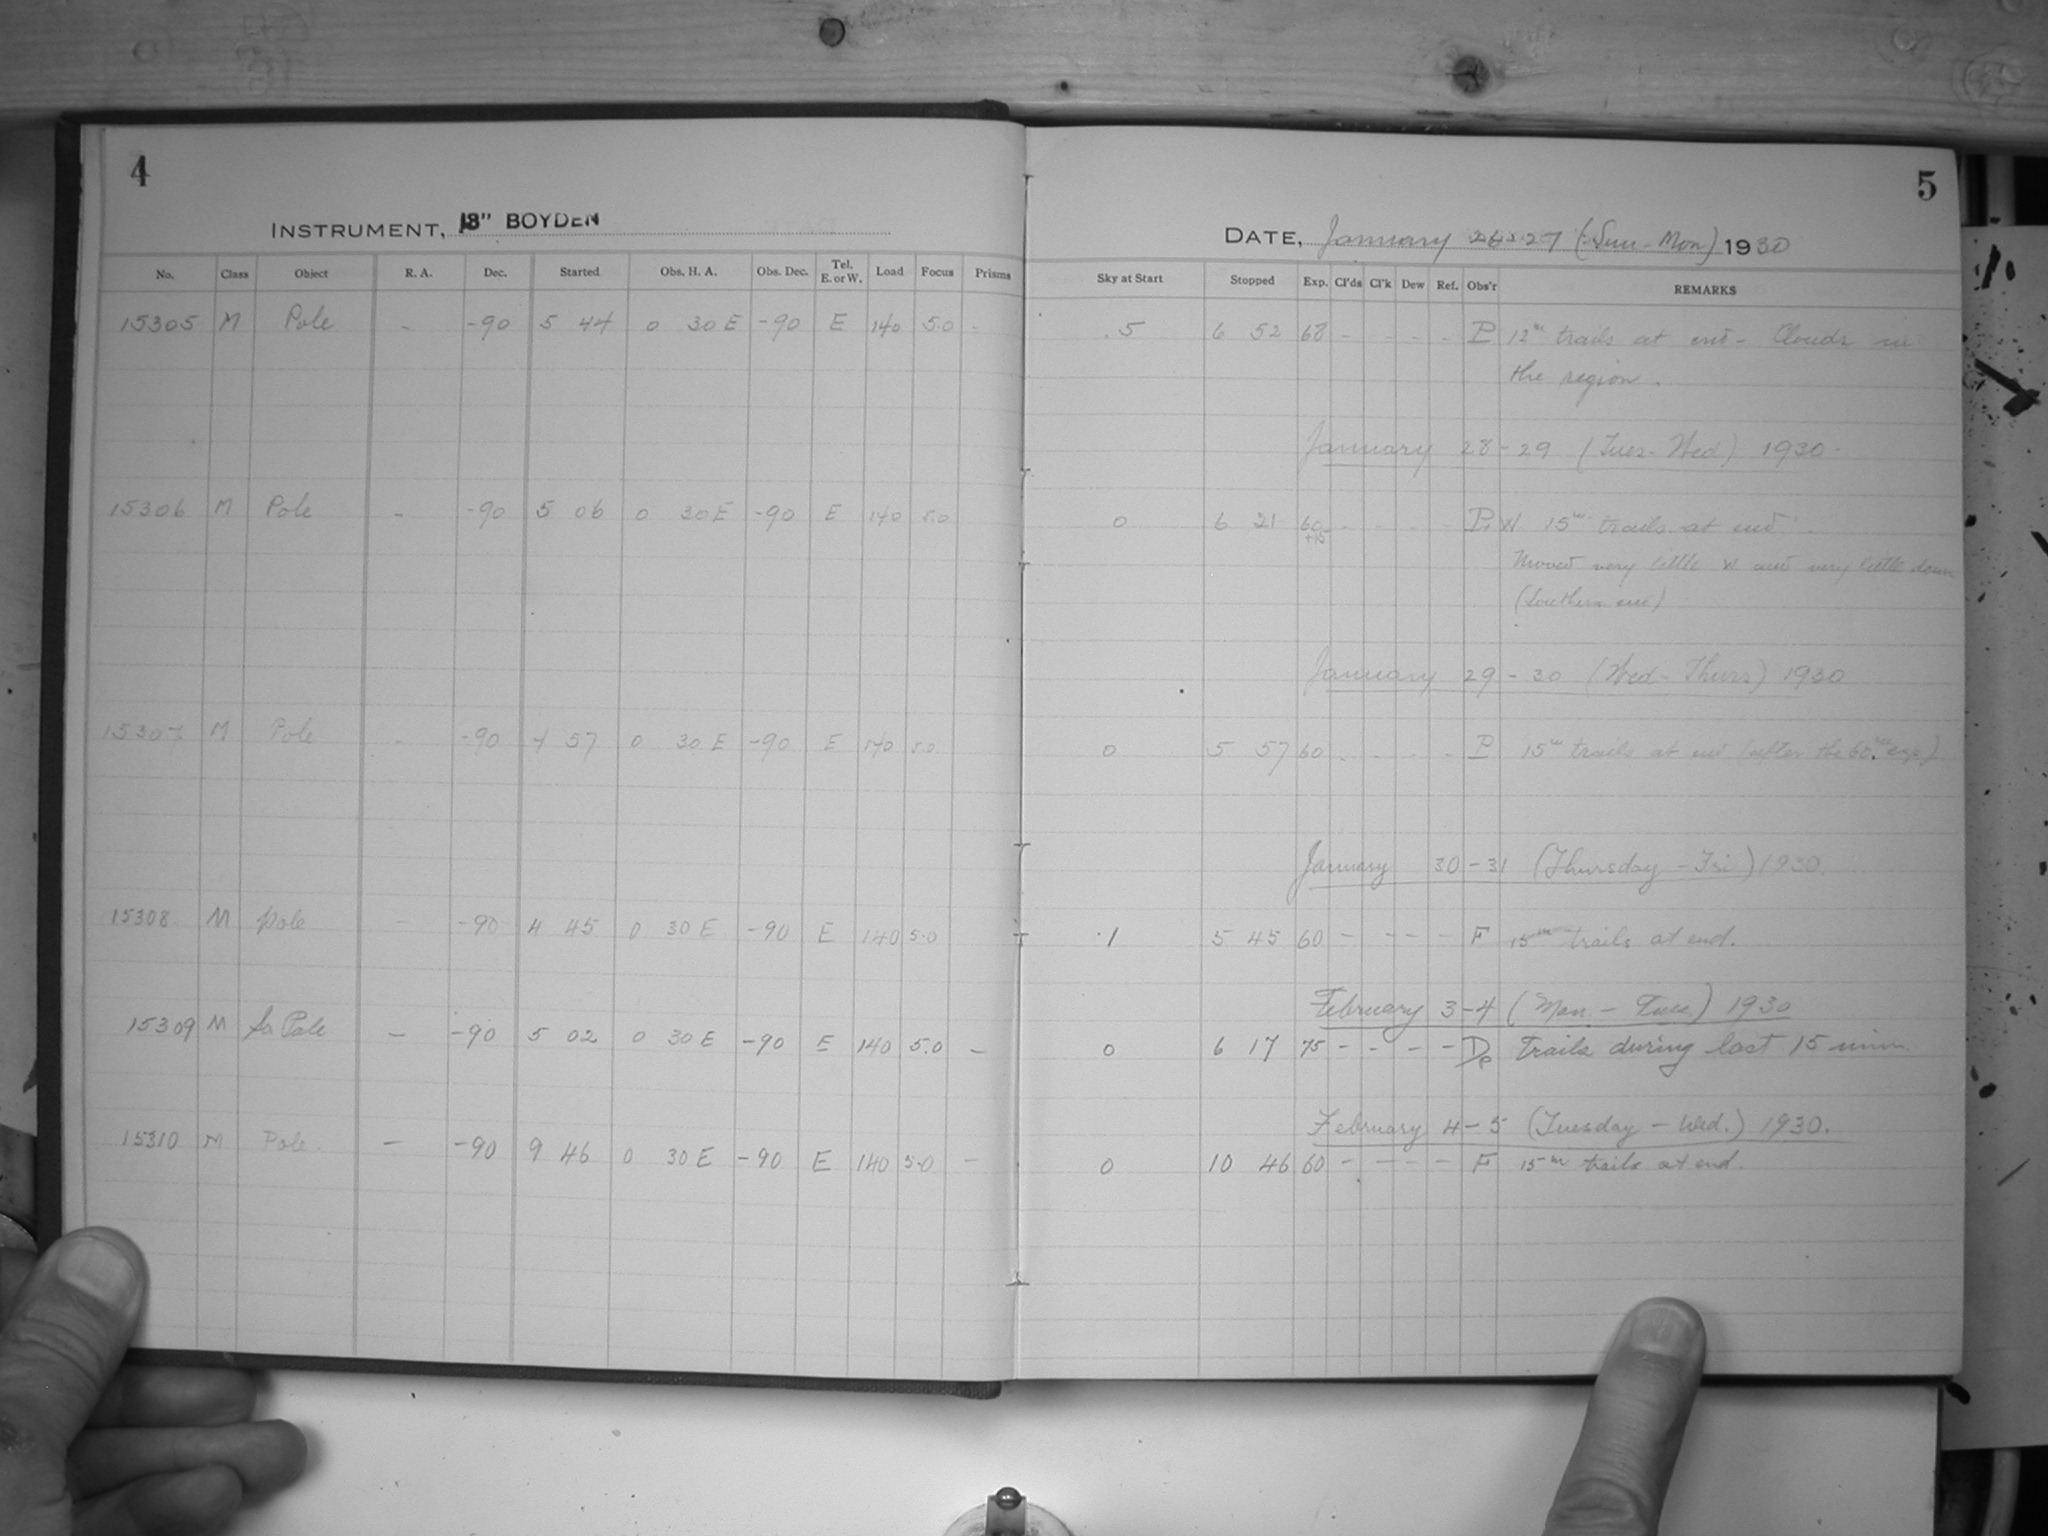 4
INSTRUMENT, 13" BOYDEN
No. Class Object R. A. Dec. Started Obs. H. A. Obs. Dec. Tel. E. or W. Load Focus Prisms
15305 M Pole - -90 5 44 0 30 E -90 E 140 5.0 -
15306 M Pole - -90 5 06 0 30 E -90 E 140 5.0
15307 M Pole - -90 4 57 0 30 E -90 E 140 5.0
15308 M Pole - -90 4 45 0 30 E -90 E 140 5.0
15309 M So Pole - -90 5 02 0 30 E -90 E 140 5.0 -
15310 M Pole - -90 9 46 0 30 E -90 E 140 5.0 -
5
DATE, January 26-27 (Sun-Mon) 1930
Sky at Start Stopped Exp. Cl'ds Cl'k Dew Ref. Obs'r REMARKS
.5 6 52 68 - - - - P 12m trails at end - Clouds in
the region.
January 28-29 (Tues-Wed) 1930.
0 6 21 60 - - - - P, W 15m trails at end
+15
Moved very little W and very little down
(Southern end)
January 29-30 (Wed-Thurs) 1930
0 5 57 60 - - - - P 15m trails at end (after the 60m exp)
January 30-31 (Thursday-Fri) 1930.
.1 5 45 60 - - - - F 15m trails at end.
February 3-4 (Mon.-Tues) 1930
0 6 17 75 - - - - De Trails during last 15 min.
February 4-5 (Tuesday-Wed.) 1930.
0 10 46 60 - - - - F 15m trails at end.